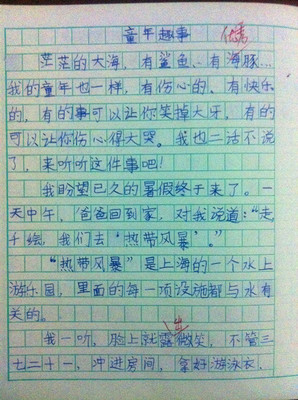 童年趣事
茫茫的大海,有鲨鱼、有海豚…
我的童年也一样,有伤心的、有快乐
的,有的事可以让你笑掉大牙,有的
可以让你伤心得大哭。我也二话不说
了,来听听这件事吧!
我盼望已久的暑假终于来了。一
天中午,爸爸回到家,对我说道:“走
千绘,我们去‘热带风暴’。”
“热带风暴”是上海的一个水上
游乐园,里面的每一项设施都与水有
关的。
我一听,脸上就露微笑,不管三
七二十一,冲进房间,拿好游泳衣,